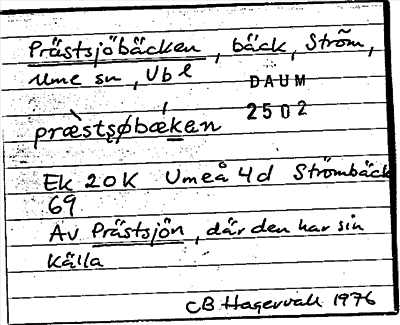 Prästsjöbäcken, bäck, Ström,
Ume sn, Vbl
DAUM
2502
præ̀stsøbækan
Ek 20K Umeå 4d Strömbäck
69
Av Prästsjön, där den har sin
källa
CB Hagervall 1976